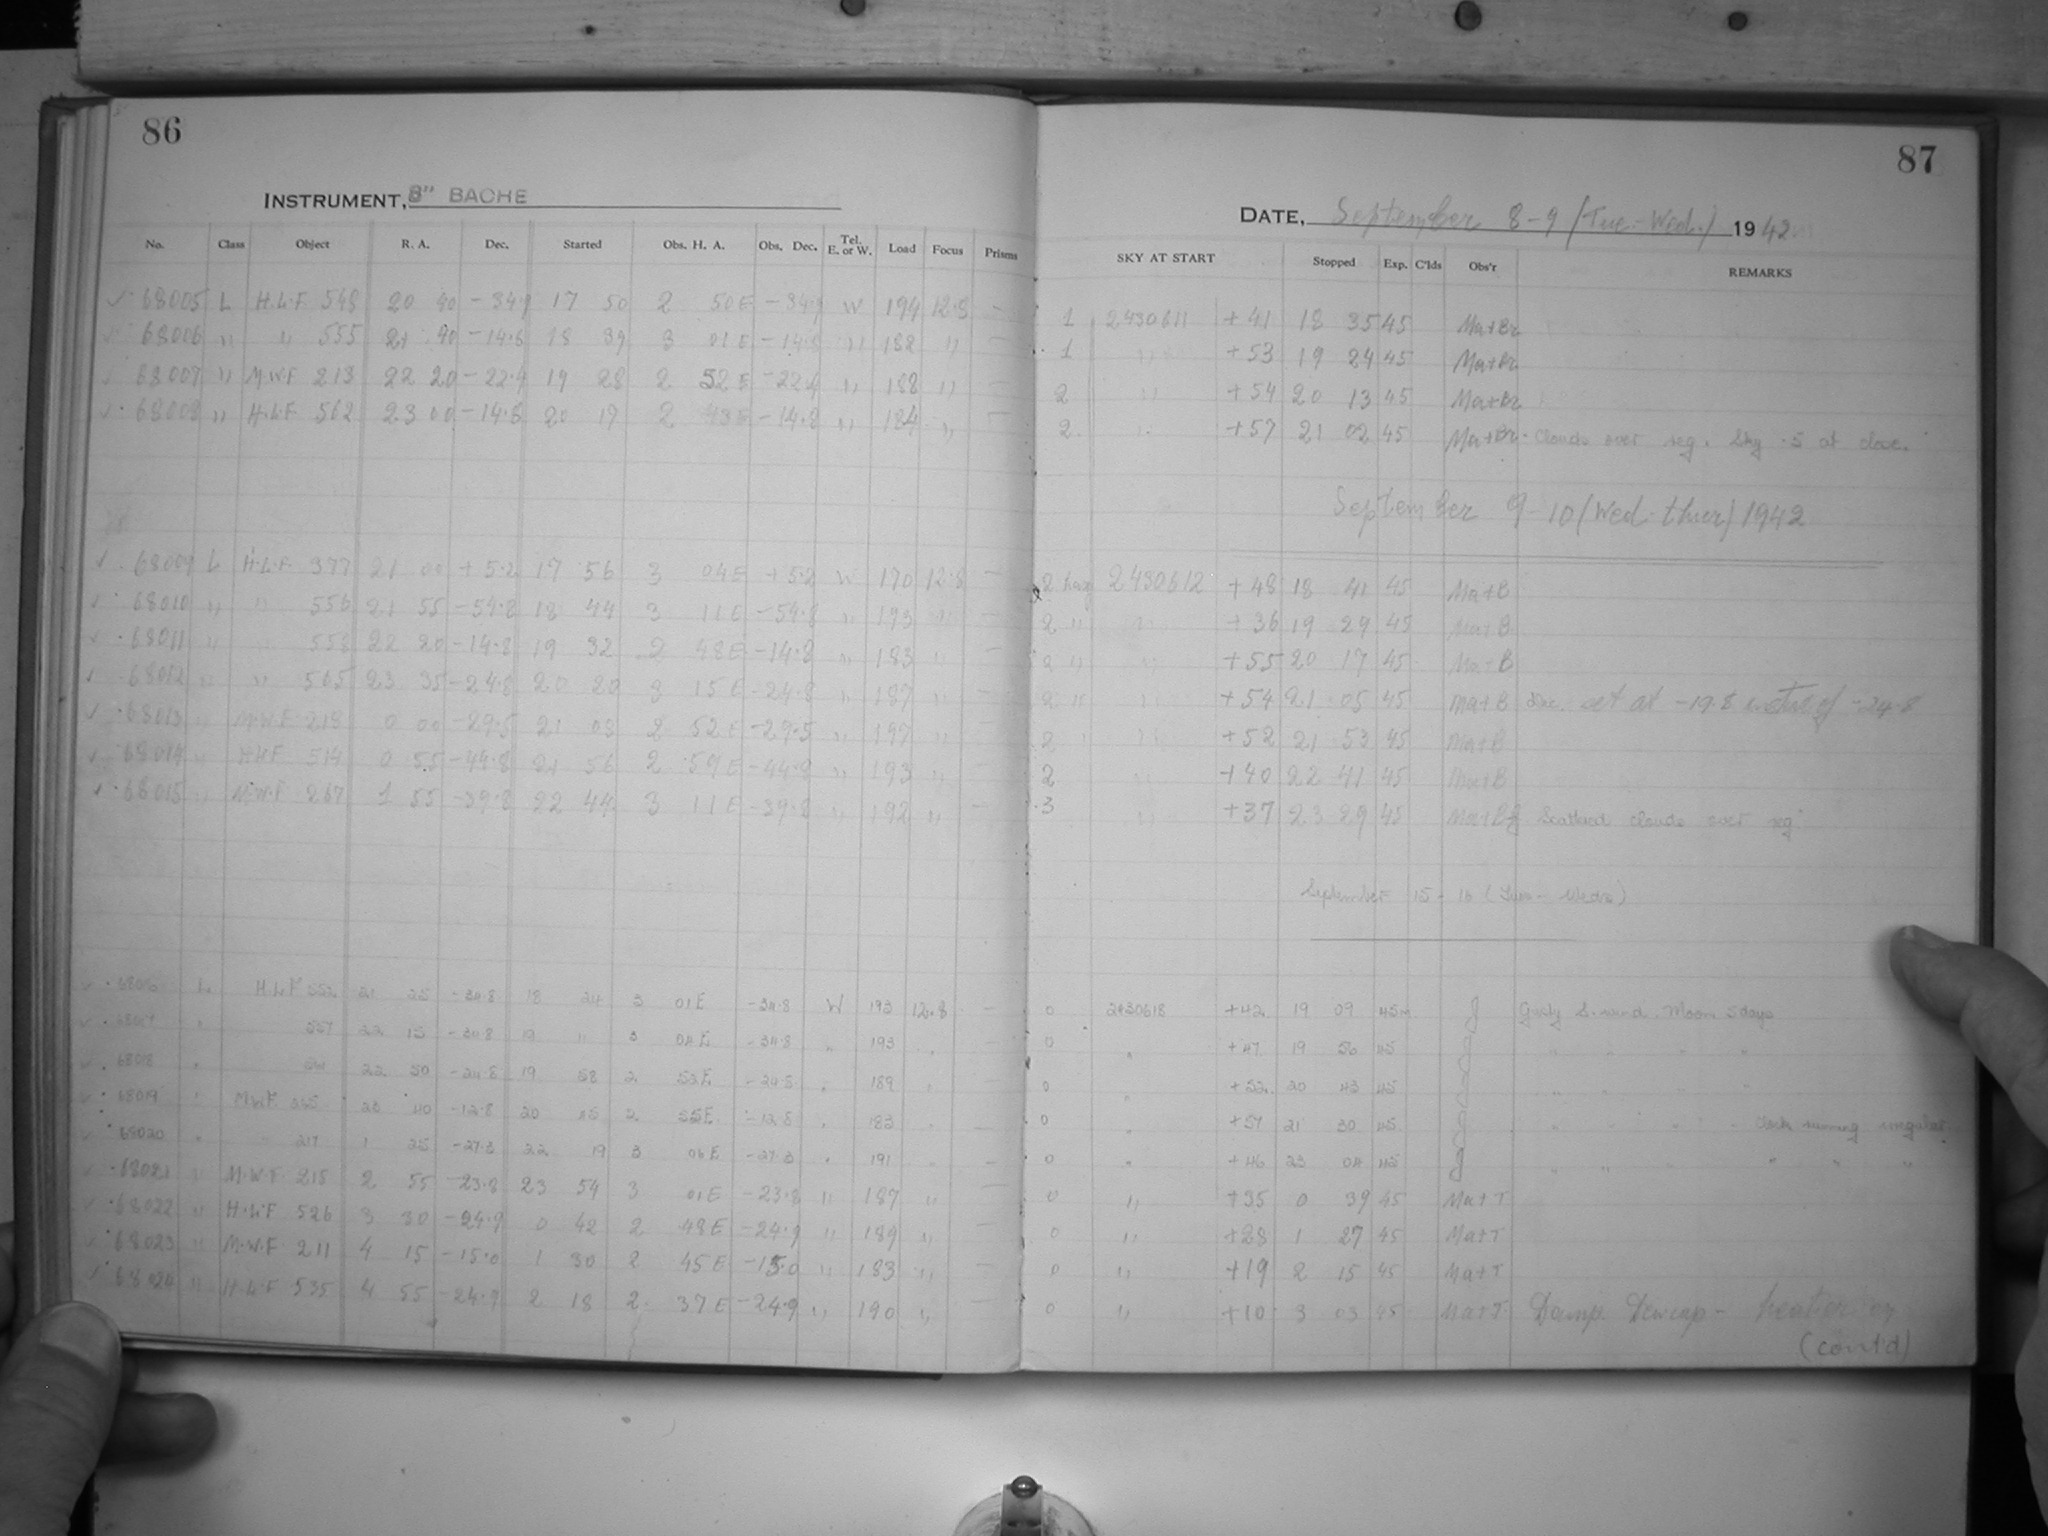 86
INSTRUMENT, 8" BACHE
No. Class Object R. A. Dec. Started Obs. H. A. Obs. Dec. Tel. E. or W. Load Focus Prisms
68005 L H.L.F. 548 20 40 -34.9 17 50 2 50E -34.9 W 194 12.8 —
68006 " " 555 21 40 -14.8 18 39 3 01E -14.8 " 182 " —
68007 " M.W.F. 213 22 20 -22.4 19 28 2 52E -22.4 " 188 " —
68008 " H.L.F. 562 23 00 -14.8 20 17 2 43E -14.8 " 184 " —
68009 L H.L.F. 377 21 00 +5.2 17 56 3 04E +5.2 W 170 12.8 —
68010 " " 556 21 55 -54.8 18 44 3 11E -54.8 " 193 " —
68011 " " 558 22 20 -14.8 19 32 2 48E -14.8 " 183 " —
68012 " " 565 23 35 -24.8 20 20 3 15E -24.8 " 187 " —
68013 " M.W.F. 218 0 00 -29.5 21 08 2 52E -29.5 " 197 "
68014 " H.L.F. 514 0 55 -44.8 21 56 2 59E -44.8 " 193 "
68015 " M.W.F. 267 1 55 -39.8 22 44 3 11E -39.8 " 192 " —
68016 L H.L.F. 552 21 25 -34.8 18 24 3 01E -34.8 W 193 12.8 —
68017 " 557 22 15 -34.8 19 11 3 04E -34.8 " 193 " —
68018 " 22 50 -24.8 19 58 2 53E -24.8 " 189 " —
68019 " M.W.F. 23 40 -12.8 20 45 2 55E -12.8 " 183 " —
68020 " 217 1 25 -27.3 22 19 3 06E -27.3 " 191 " —
68021 " M.W.F. 218 2 55 -23.8 23 54 3 01E -23.8 " 187 " —
68022 " H.L.F. 526 3 30 -24.9 0 42 2 48E -24.9 " 189 "
68023 " M.W.F. 211 4 15 -15.0 1 30 2 45E -15.0 " 183 " —
68024 " H.L.F. 535 4 55 -24.9 2 18 2 37E -24.9 " 190 " —
87
DATE, September 8-9 (Tue.-Wed.) 1942
SKY AT START Stopped Exp. C'lds Obs'r REMARKS
1 2430611 +41 18 35 45 Ma+Br
1 " +53 19 24 45 Ma+Br
2 " +54 20 13 45 Ma+Br
2 " +57 21 02 45 Ma+Br Clouds over reg. Sky .5 at close.
September 9-10 (Wed-thur) 1942
2 hazy 2430612 +48 18 41 45 Ma+B
2 " " +36 19 29 45 Ma+B
2 " " +55 20 17 45 Ma+B
2 " " +54 21 05 45 Ma+B Dec. set at -19.8 instead of -24.8
2 " +52 21 53 45 Ma+B
2 " +40 22 41 45 Ma+B
3 " +37 23 29 45 Scattered clouds over reg.
September 15-16 (Tues - Weds)
0 2430618 +42 19 09 45m J Gusty S. wind. Moon 5 days
0 " +47 19 56 45 J " " " "
0 " +52 20 43 45 J " " " "
0 " +57 21 30 45 J " " " " Clock running irregular
0 " +46 23 04 45 J " " " " " " "
0 " +35 0 39 45 Ma+T
0 " +28 1 27 45 Ma+T
0 " +19 2 15 45 Ma+T
0 " +10 3 03 45 Ma+T Damp. Dewcap - heater on
(cont'd)